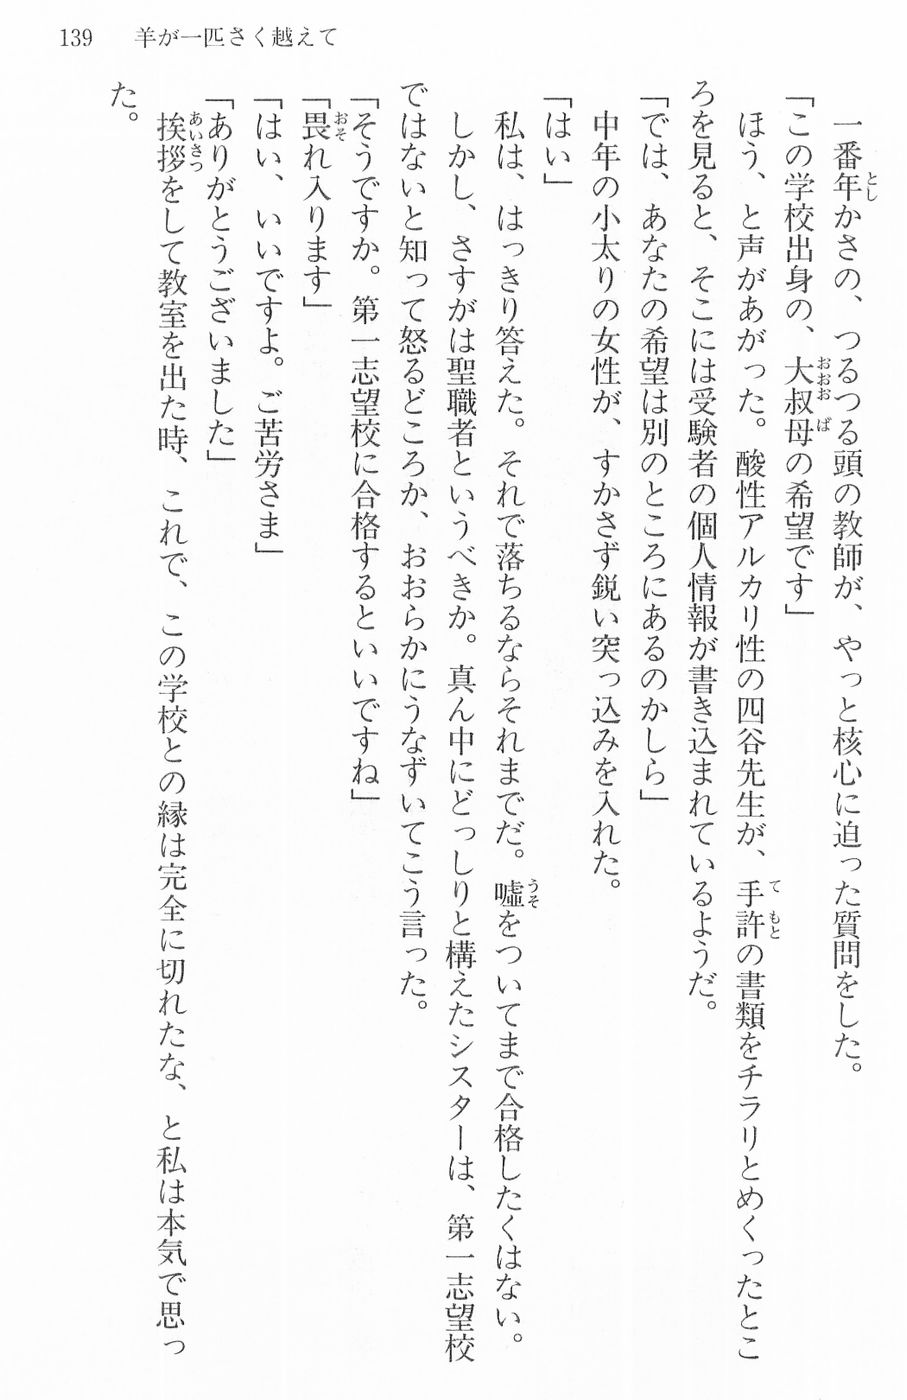 139　羊が一匹さく越えて
　一番年かさの、つるつる頭の教師が、やっと核心に迫った質問をした。
「この学校出身の、大叔母の希望です」
　ほう、と声があがった。酸性アルカリ性の四谷先生が、手許の書類をチラリとめくったとこ
ろを見ると、そこには受験者の個人情報が書き込まれているようだ。
「では、あなたの希望は別のところにあるのかしら」
　中年の小太りの女性が、すかさず鋭い突っ込みを入れた。
「はい」
　私は、はっきり答えた。それで落ちるならそれまでだ。嘘をついてまで合格したくはない。
　しかし、さすがは聖職者というべきか。真ん中にどっしりと構えたシスターは、第一志望校
ではないと知って怒るどころか、おおらかにうなずいてこう言った。
「そうですか。第一志望校に合格するといいですね」
「畏れ入ります」
「はい、いいですよ。ご苦労さま」
「ありがとうございました」
　挨拶をして教室を出た時、これで、この学校との縁は完全に切れたな、と私は本気で思っ
た。